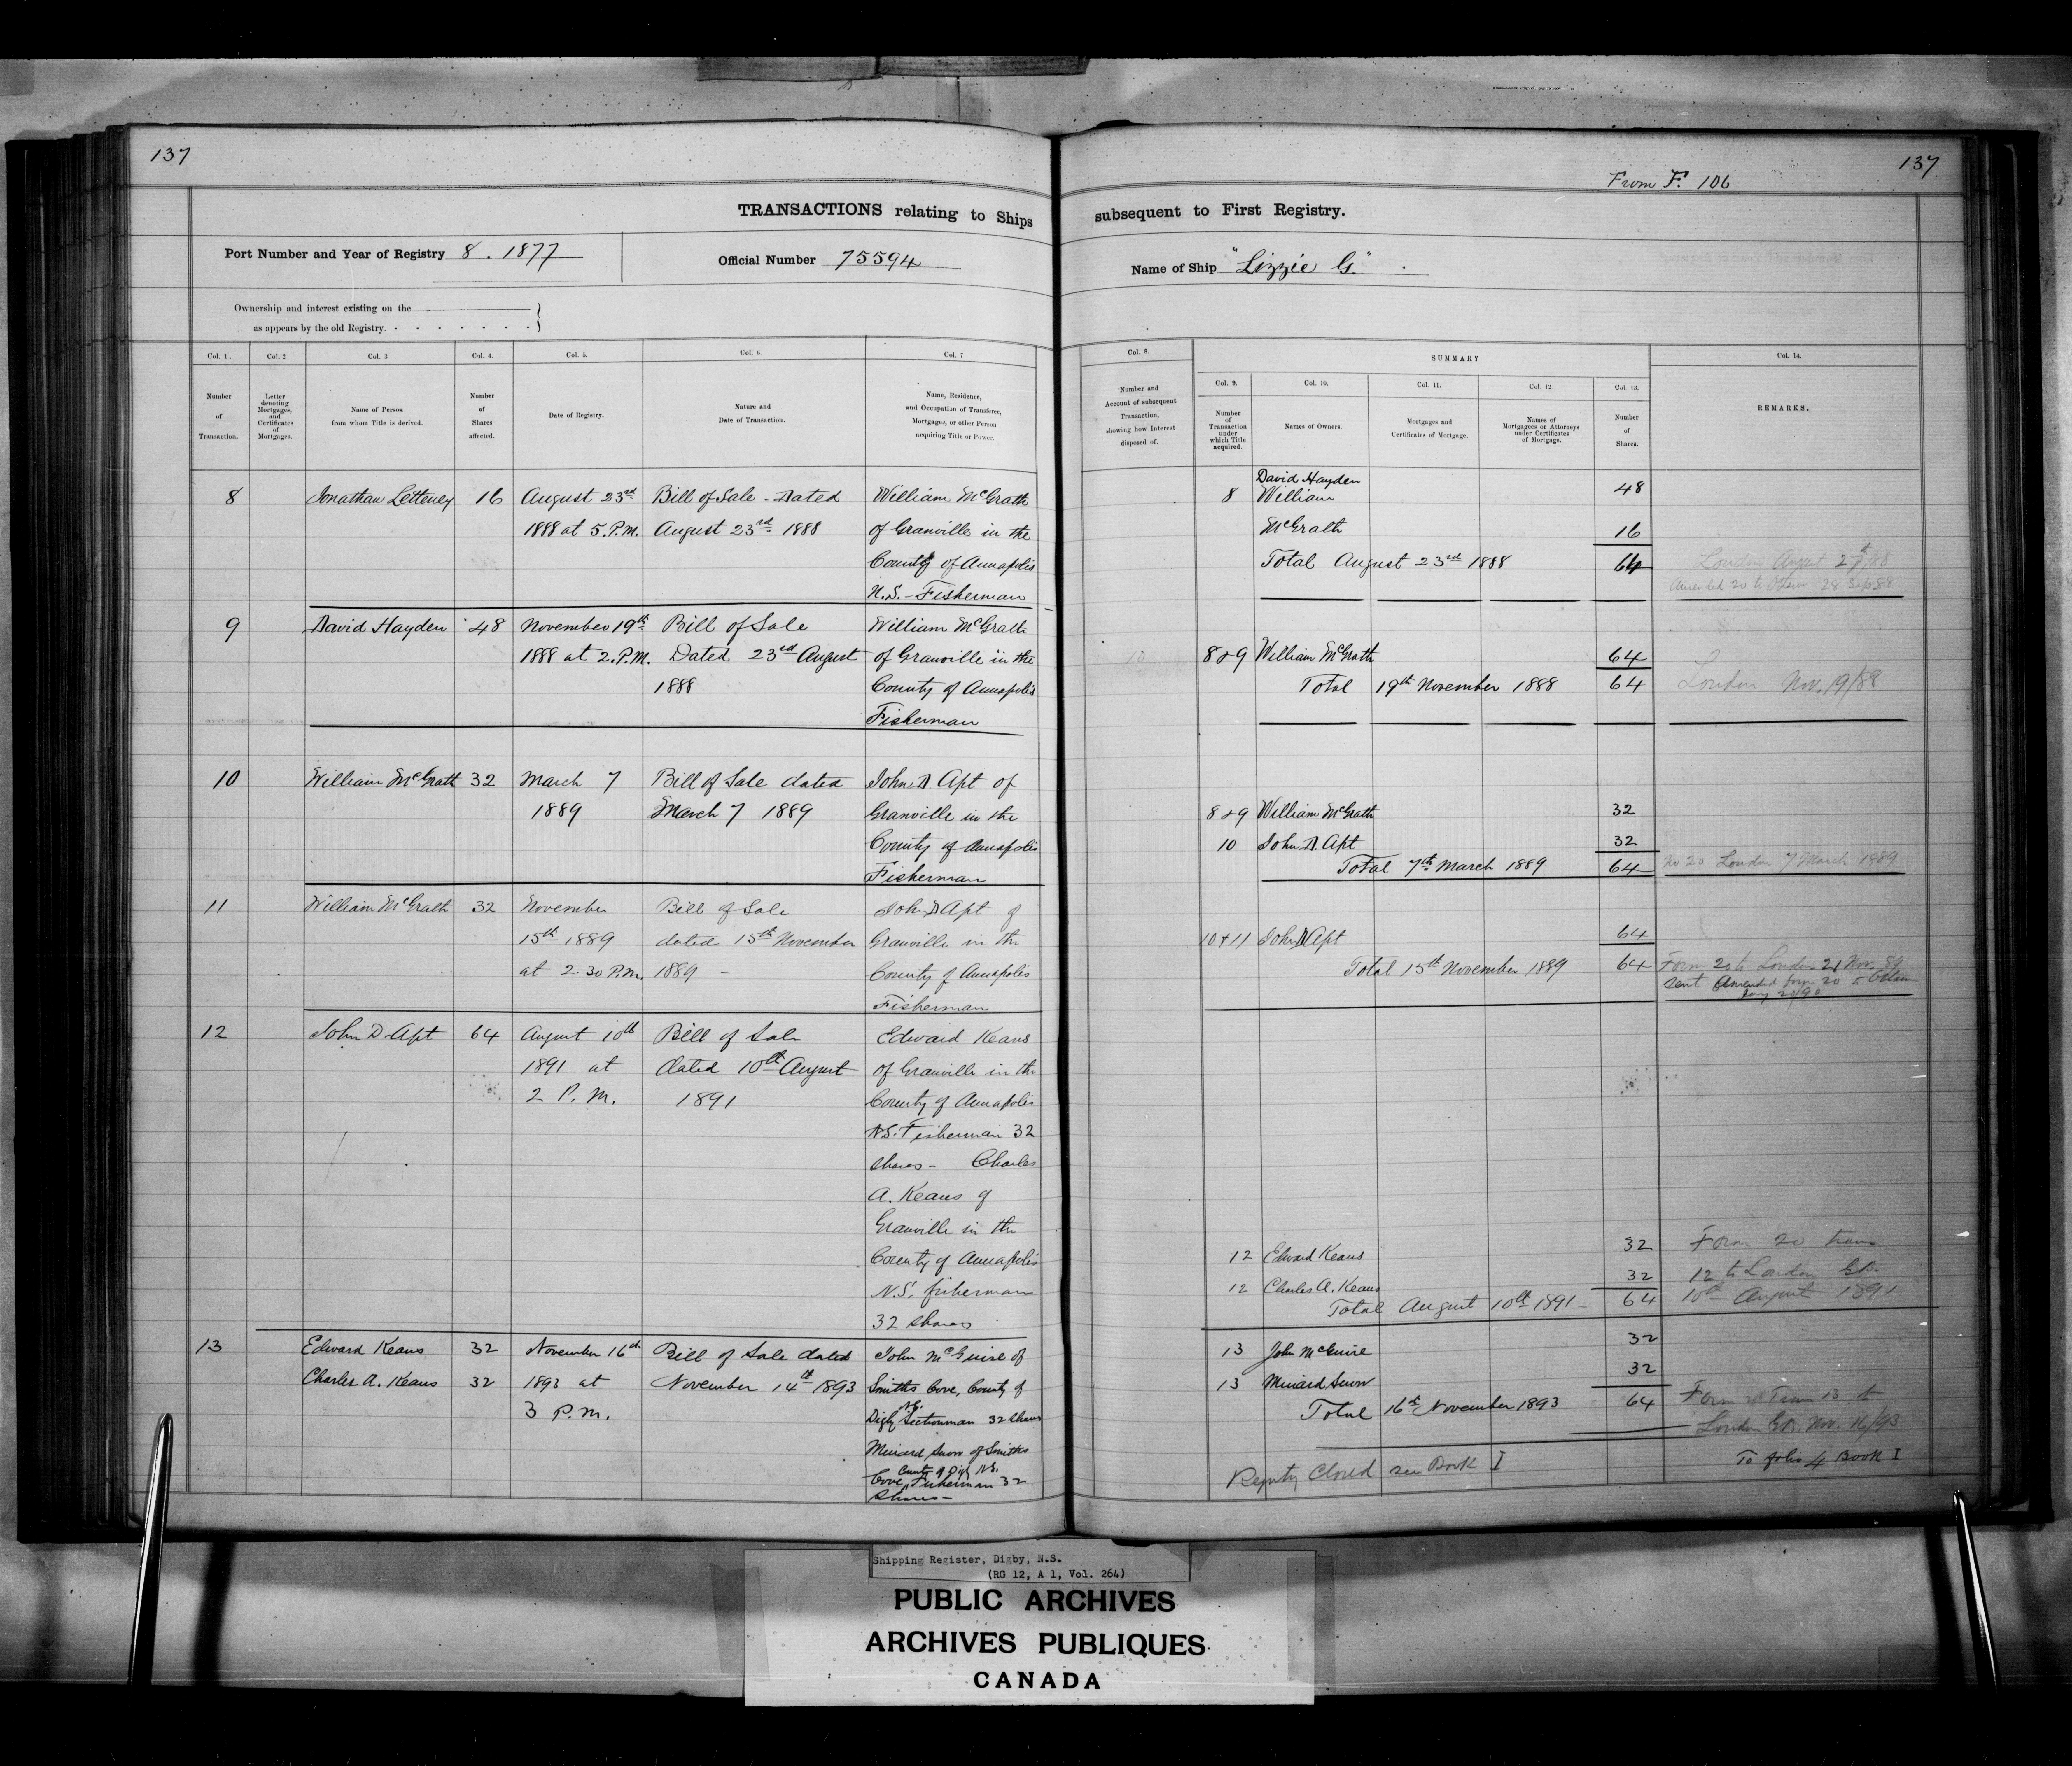 137
137
From F. 106
TRANSACTIONS relating to Ships subsequent to First Registry.
Port Number and Year of Registry 8. 1877
Official Number 75594
Name of Ship "Lizzie G."
Ownership and interest existing on the
as appears by the old Registry.
Col. 1.
Col. 2
Col. 3
Col. 4.
Col. 5.
Col. 6.
Col. 7
Number of Transaction.
Letter denoting Mortgages, and Certificates of Mortgages.
Name of Person from whom Title is derived.
Number of Shares affected.
Date of Registry.
Nature and Date of Transaction.
Name, Residence, and Occupation of Transferee, Mortgagee, or other Person acquiring Title or Power.
Col. 8.
SUMMARY
Col. 14.
Col. 9.
Col. 10.
Col. 11.
Col. 12
Col. 13.
Number and Account of subsequent Transaction, showing how Interest disposed of.
Number of Transaction under which Title acquired.
Names of Owners.
Mortgages and Certificates of Mortgage.
Names of Mortgagees or Attorneys under Certificates of Mortgage.
Number of Shares.
REMARKS.
8 Jonathan Letteney 16 August 23rd Bill of Sale - Dated William McGrath
1888 at 5. P.M. August 23rd 1888 of Granville in the
County of Annapolis
N.S. - Fisherman
David Hayden 48
8 William
McGrath 16
Total August 23rd 1888 64
London August 27th/88
Amended 20 to Ottawa 28 Sep 88
9 David Hayden 48 November 19th Bill of Sale William McGrath
1888 at 2. P.M. Dated 23rd August of Granville in the
1888 County of Annapolis
Fisherman
10 8 & 9 William McGrath 64
Total 19th November 1888 64 London Nov. 19/88
10 William McGrath 32 March 7 Bill of Sale dated John D Apt of
1889 March 7 1889 Granville in the
County of Annapolis
Fisherman
8 & 9 William McGrath 32
10 John D. Apt 32
Total 7th March 1889 64 No 20 London 7 March 1889
11 William McGrath 32 November Bill of Sale John D Apt of
15th 1889 dated 15th November Granville in the
at 2.30 P.M. 1889 - County of Annapolis
Fisherman
10 & 11 John D Apt 64
Total 15th November 1889 64 Form 20 to London 21 Nov. 89
Sent Amended form 20 to Ottawa
12 John D Apt 64 August 10th Bill of Sale Edward Keans
1891 at dated 10th August of Granville in the
2 P.M. 1891 County of Annapolis
N.S. Fisherman 32
shares - Charles
A. Keans of
Granville in the
County of Annapolis
N.S. fisherman
32 shares
12 Edward Keans 32 Form 20 trans
12 Charles A. Keans 32 12 to London GB.
Total August 10th 1891 - 64 10th August 1891
13 Edward Keans 32 November 16th Bill of Sale dated John McGuire of
Charles A. Keans 32 1893 at November 14th 1893 Smiths Cove, County of
3 P.M. Digby N.S. Sectionman 32 shares
Minard Snow of Smiths
Cove, County of Digby N.S. Fisherman 32
shares -
13 John McGuire 32
13 Minard Snow 32
Total 16th November 1893 64 Form 20 Trans 13 to
London GB. Nov. 16/93
Registry Closed see Book I
To folio 4 Book I
Shipping Register, Digby, N.S.
(RG 12, A 1, Vol. 264)
PUBLIC ARCHIVES
ARCHIVES PUBLIQUES
CANADA